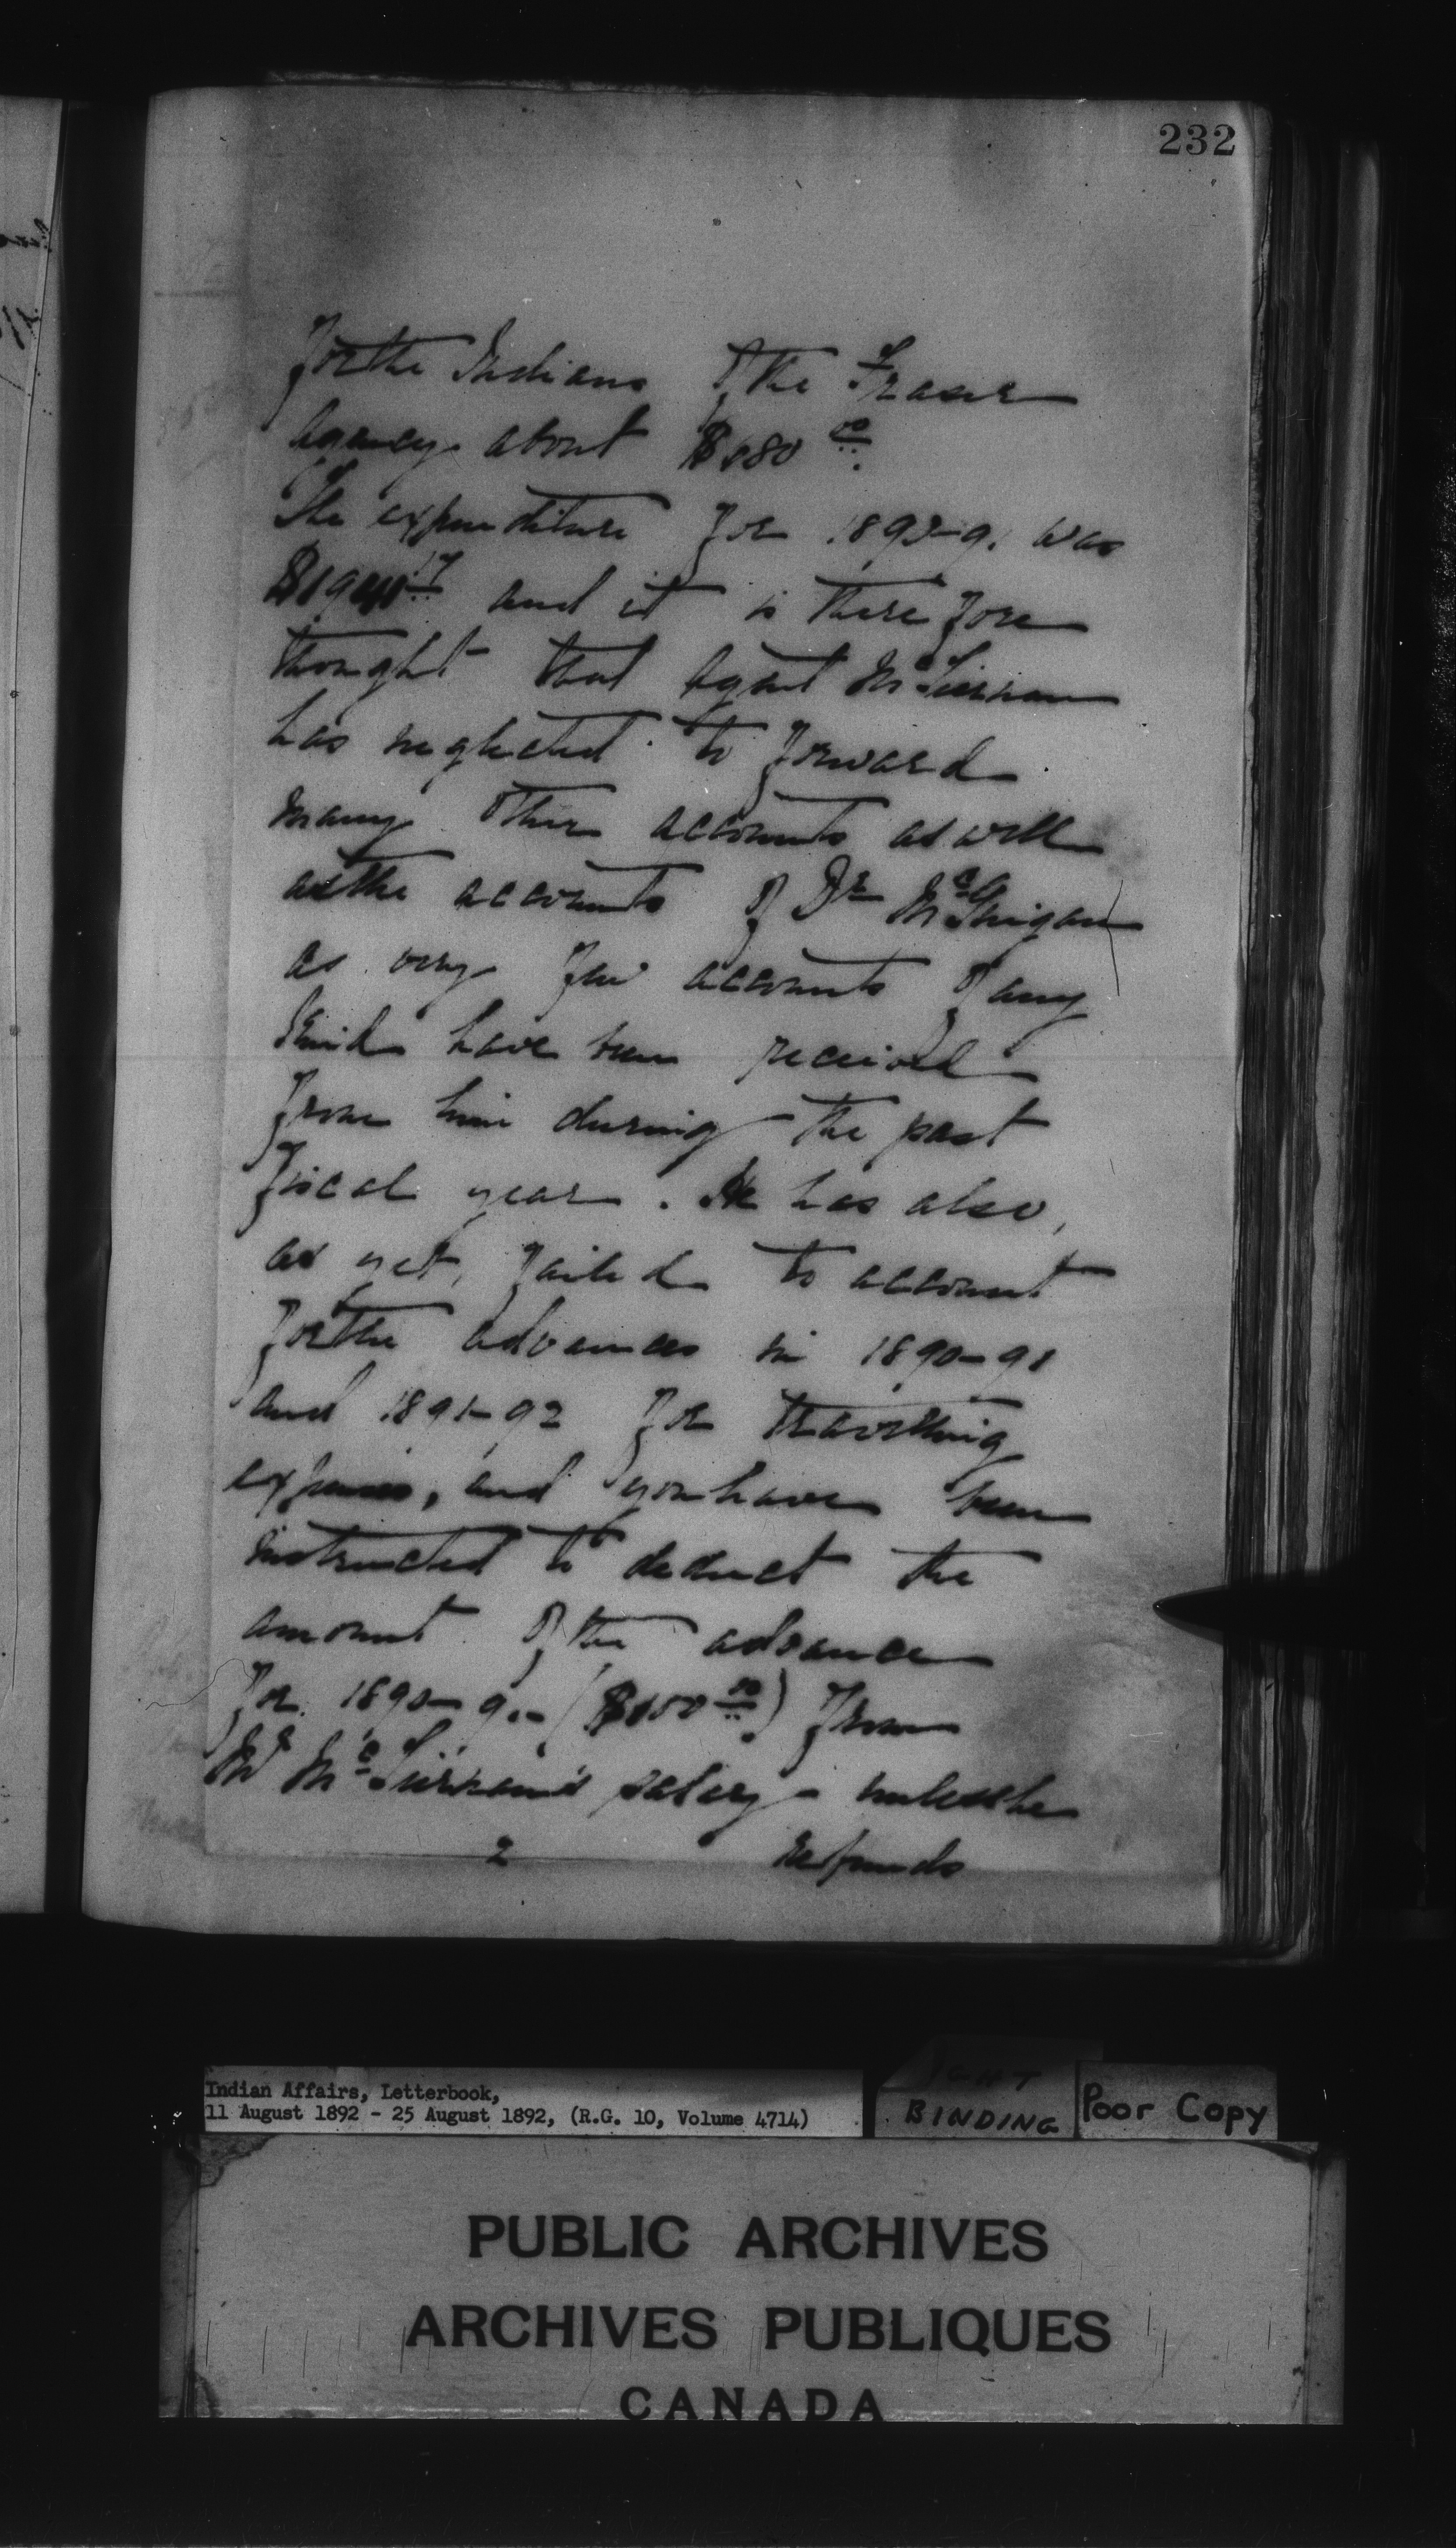 232
for the Indians of the Fraser
Agency about $680 00.
The expenditure for 1890-91 was
and it is therefore
thought that Agent McTiernan
has neglected to forward
many other accounts as well
as the accounts of Dr McGuigan
as very few accounts of any
kind have been received
from him during the past
fiscal year. He has also,
as yet, failed to account
for the advances in 1890-91
and 1891-92 for travelling
expenses, and you have been
instructed to deduct the
amount of the advance
for 1890-91 from
Mr McTiernan's salary - unless he
2 refunds
Indian Affairs, Letterbook,
11 August 1892 - 25 August 1892, (R.G. 10, Volume 4714)
BINDING
Poor Copy
PUBLIC ARCHIVES
ARCHIVES PUBLIQUES
CANADA